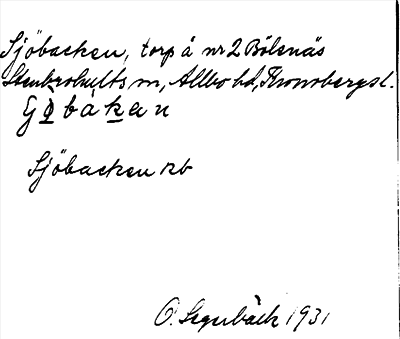 Sjöbacken, torp å nr 2 Bölsnäs
Stenbrohults sn, Allbo hd, Kronobergs l.
Sjöbacken kb
O. Segerbäck 1931